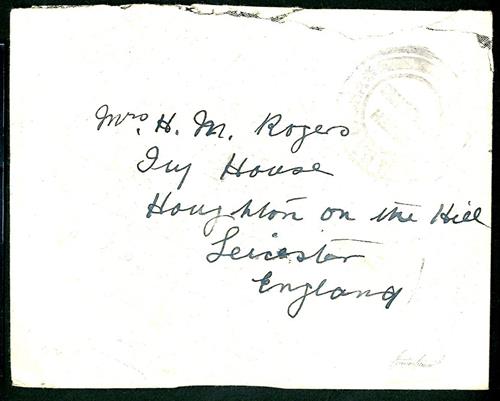 Mrs. H. M. Rogers
Ivy House
Houghton on the Hill
Leicester
England